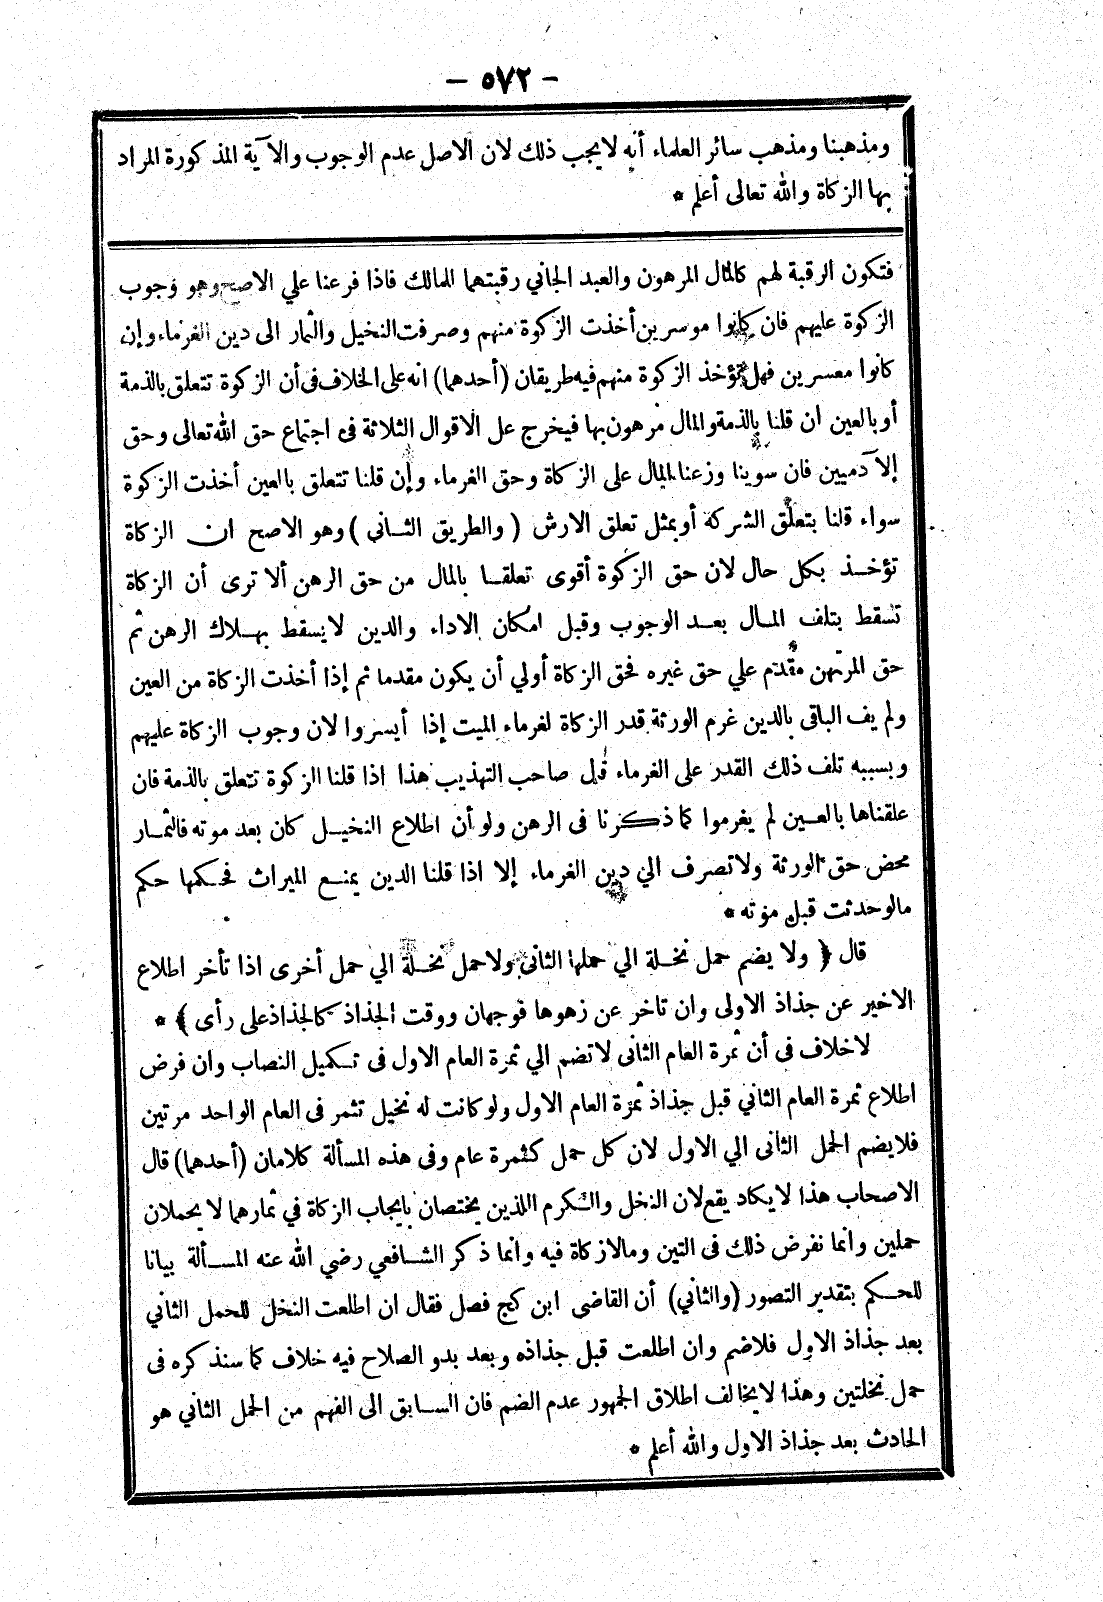 - ٥٧٢ -
ومذهبنا ومذهب سائر العلماء أنه لايجب ذلك لان الاصل عدم الوجوب والآية المذكورة المراد
بها الزكاة والله تعالى أعلم *
فتكون الرقبة لهم كالمال المرهون والعبد الجاني رقبتهما للمالك فاذا فرعنا علي الاصح وهو وجوب
الزكوة عليهم فان كانوا موسرين أخذت الزكوة منهم وصرفت النخيل والثمار الى دين الغرماء وإن
كانوا معسرين فهل تؤخذ الزكوة منهم فيه طريقان (أحدهما) انه على الخلاف فى أن الزكوة تتعلق بالذمة
أو بالعين ان قلنا بالذمة والمال مرهون بها فيخرج عل الاقوال الثلاثة فى اجتماع حق الله تعالى وحق
الآدميين فان سوينا وزعنا المال على الزكاة وحق الغرماء وإن قلنا تتعلق بالعين أخذت الزكوة
سواء قلنا بتعلق الشركة أو بمثل تعلق الارش (والطريق الثاني) وهو الاصح ان الزكاة
تؤخذ بكل حال لان حق الزكوة أقوى تعلقا بالمال من حق الرهن ألا ترى أن الزكاة
تسقط بتلف المال بعد الوجوب وقبل امكان الاداء والدين لا يسقط بهلاك الرهن ثم
حق المرتهن مقدم علي حق غيره فحق الزكاة أولي أن يكون مقدما ثم إذا أخذت الزكاة من العين
ولم يف الباقى بالدين غرم الورثة قدر الزكاة لغرماء الميت إذا أيسروا لان وجوب الزكاة عليهم
وبسببه تلف ذلك القدر على الغرماء قال صاحب التهذيب هذا اذا قلنا الزكوة تتعلق بالذمة فان
علقناها بالعين لم يغرموا كما ذكرنا فى الرهن ولو أن اطلاع النخيل كان بعد موته فالثمار
محض حق الورثة ولا تصرف الي دين الغرماء إلا اذا قلنا الدين يمنع الميراث فحكمها حكم
مالو حدثت قبل موته *
قال ﴿ ولا يضم حمل نخلة الي حملها الثانى ولا حمل نخلة الي حمل أخرى اذا تأخر اطلاع
الاخير عن جذاذ الاولى وان تاخر عن زهوها فوجهان ووقت الجذاذ كالجذاذ على رأى ﴾ *
لاخلاف فى أن ثمرة العام الثانى لا تضم الي ثمرة العام الاول فى تكميل النصاب وان فرض
اطلاع ثمرة العام الثاني قبل جذاذ ثمرة العام الاول ولو كانت له نخيل تثمر فى العام الواحد مرتين
فلا يضم الحمل الثانى الي الاول لان كل حمل كثمرة عام وفى هذه المسألة كلامان (أحدهما) قال
الاصحاب هذا لا يكاد يقع لان النخل والكرم اللذين يختصان بايجاب الزكاة في ثمارهما لا يحملان
حملين وانما نفرض ذلك فى التين ومالا زكاة فيه وانما ذكر الشافعي رضي الله عنه المسألة بيانا
للحكم بتقدير التصور (والثاني) أن القاضى ابن كج فصل فقال ان اطلعت النخل للحمل الثاني
بعد جذاذ الاول فلا ضم وان اطلعت قبل جذاذه وبعد بدو الصلاح فيه خلاف كما سنذكره فى
حمل نخلتين وهذا لا يخالف اطلاق الجمهور عدم الضم فان السابق الى الفهم من الحمل الثاني هو
الحادث بعد جذاذ الاول والله أعلم *